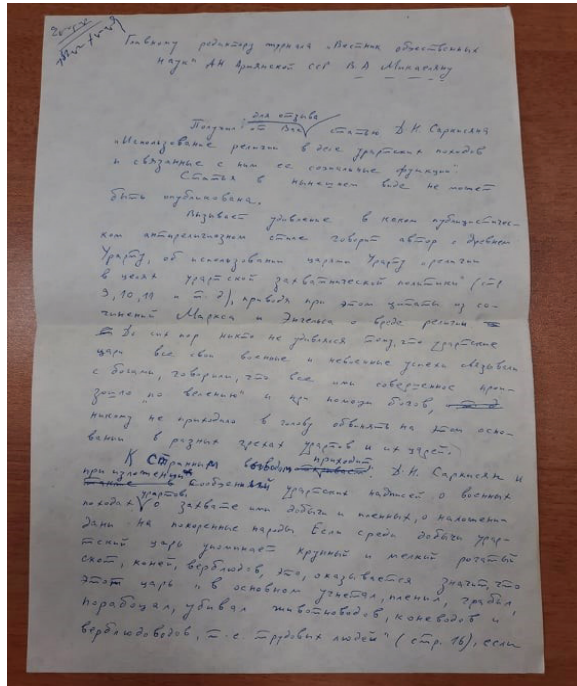 Главному редактору журнала „Вестник общественных
наук" АН Армянской ССР В.А. Микаеляну
для отзыва
Получил от Вас статью Д.Н. Саркисяна
„Использование религии в деле урартских походов
и связанные с ним ее социальные функции"
Статья в нынешнем виде не может
быть опубликована.
Вызывает удивление в каком публицистичес-
ком антирелигиозном стиле говорит автор о древнем
Урарту, об использовании царями Урарту „религии
в целях урартской захватнической политики" (стр
9,10,11 и т.д), приводя при этом цитаты из со-
чинений Маркса и Энгельса о вреде религии
До сих пор никто не удивлялся тому, что урартские
цари все свои военные и невоенные успехи связывали
с богами, говорили, что все ими совершенное прои-
зошло „по велению" и при помощи богов,
никому не приходило в голову обвинять на этом осно-
вании в разных грехах урартов и их царей.
К странным выводам приходит Д.Н. Саркисян и
при изложении сообщений урартских надписей о военных
походах урартов о захвате ими добычи и пленных, о наложении
дани на покоренные народы. Если среди добычи урар-
тский царь упоминает крупный и мелкий рогатый
скот, коней, верблюдов, это, оказывается значит, что
этот царь „в основном угнетал, пленил, грабил,
порабощал, убивал животноводов, коневодов и
верблюдоводов, т.е. трудовых людей" (стр. 16), если